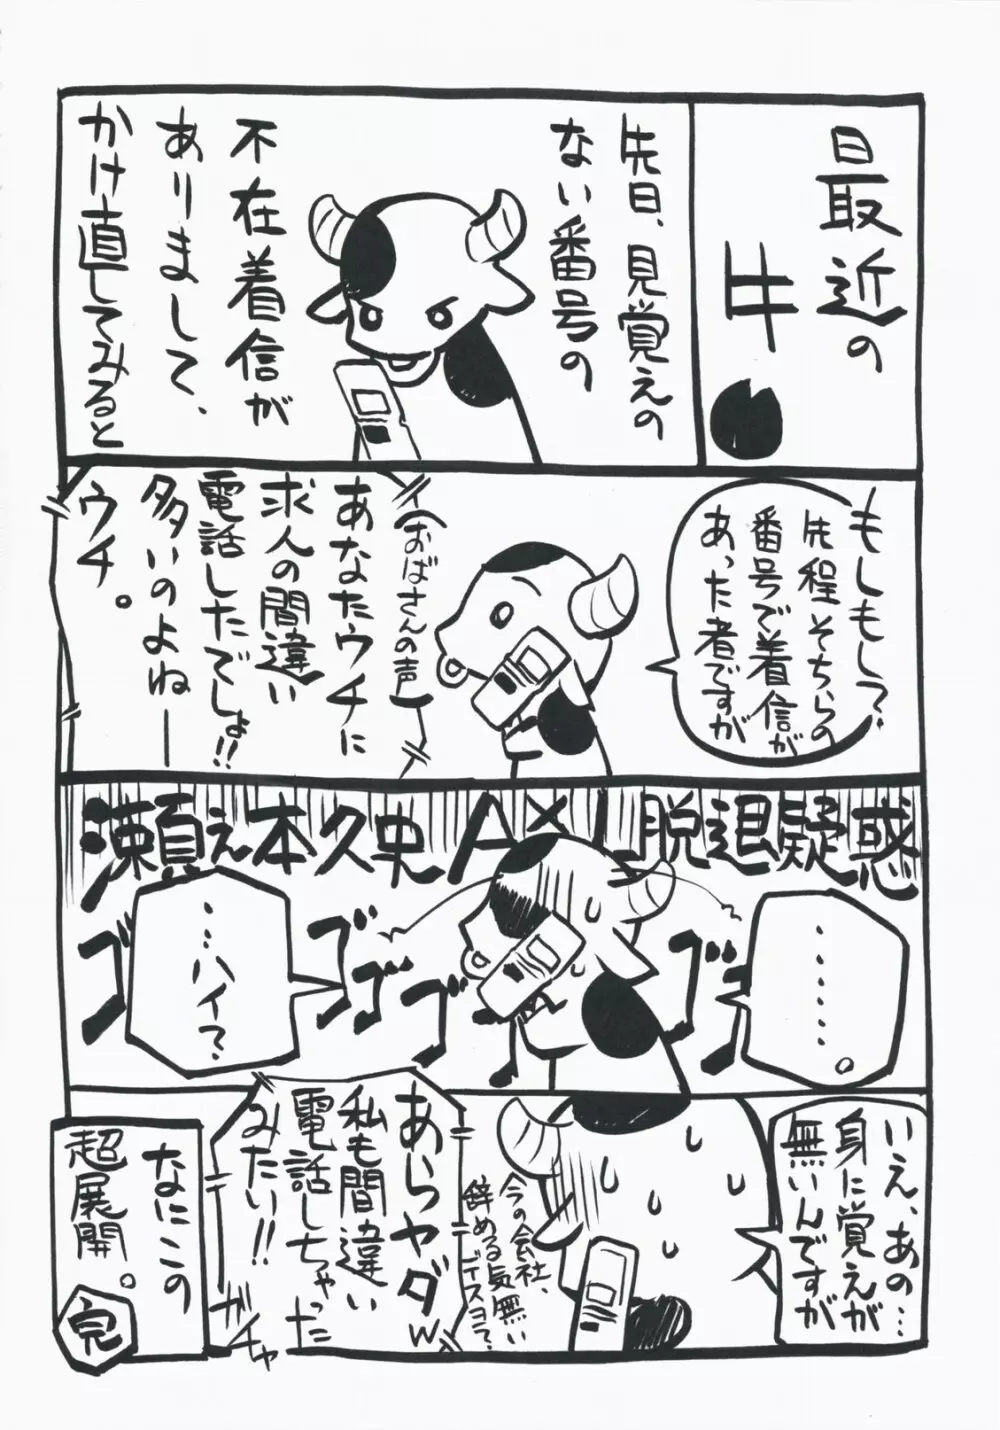 最近の
牛
先日、見覚えの
ない番号の
不在着信が
ありまして、
かけ直してみると
もしもし?
先程そちらの
番号で着信が
あった者ですが
(おばさんの声)
あなたウチに
求人の間違い
電話したでしょ!!
多いのよねー
ウチ。
瀬之本久史 A×L 脱退疑惑
・・・・・・・。
ゴゴゴゴゴゴ
・・・ハイ?
いえ、あの…
身に覚えが
無いんですが
今の会社、
辞める気無い
デイスヨ?
あらヤダw
私も間違い
電話しちゃった
みたい!!
ガチャ
なにこの
超展開。
完